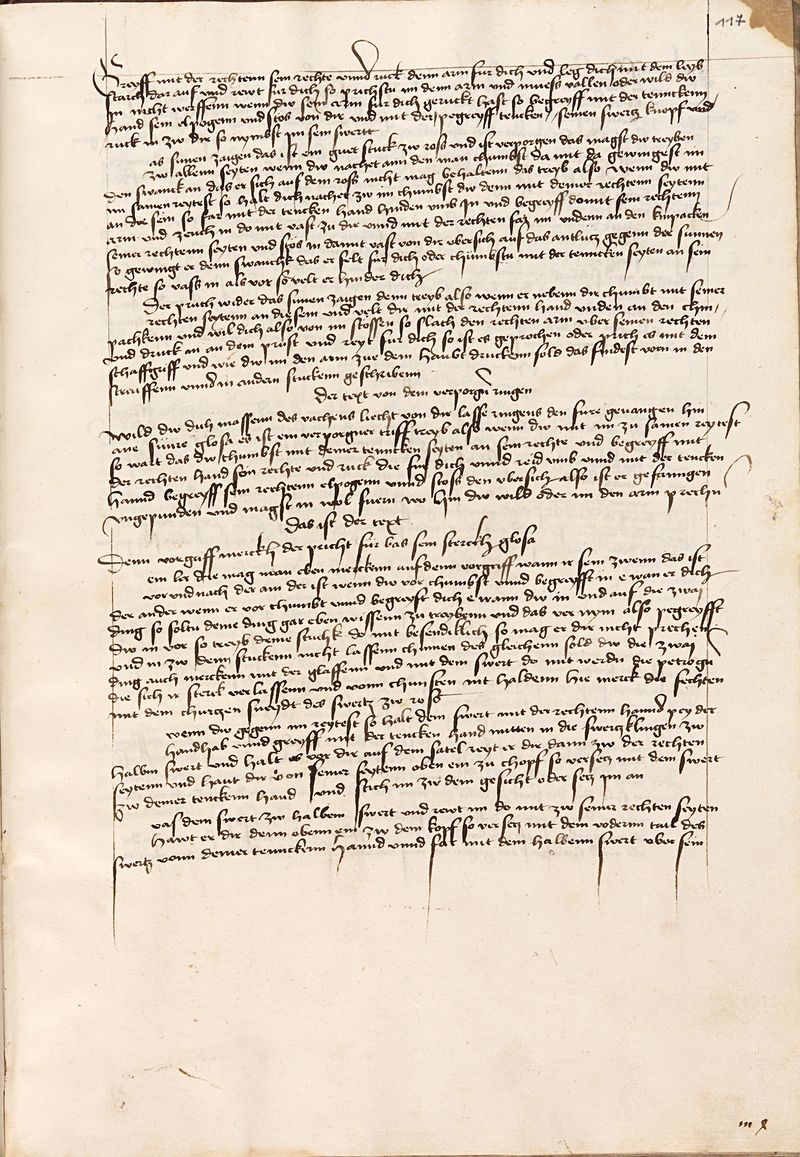 117
Greyff mit der rechtenn sein rechte vnnd ruck denn arm fur dich vnd leg dich mit dem leyb
starck dar auf vnd reyt fur dich so prichstu im denn arm vnd muess vallen oder wild dw
In nicht werffenn wenn dw sein arm fur dich geruckt hast so begreyff mit der tenncken
hand sein elpogenn vnd stos von dir vnd mit der pegreyff tencken seinen swertz knopf vnd
ruck in zw dir so nymbst im sein swertt
as sunen zaigen das ist ein guet stuck zw ross vnd ist verporgen das magst dw treyben
zw allenn seyten wenn dw nachet ann den man chumbst da mit da gewingest im
den swannk an das er sich auf dem ross nicht mag behaltenn das treyb also wenn dw mit
im samen reytest so halt dich nachet zw im chumbst dw denn mit deiner rechtenn seytenn
an die sein so far mit der tencken hand hinden vmb in vnd begreyff domit sein rechtenn
arm vnd zeuch in do mit vast zu dir vnnd mit der rechten fas im vndenn an den kinpacken
seiner rechtenn seyten vnd stos in damit vast von dir vbersich auf das antlutz gegenn der sunnen
so gewingt er denn swannck das er felt fur dich oder chumbstu mit der tenncken seyten an sein
rechte so vass in als vor so velt er hinder dich
Der pruch wider das sunen zaigen denn treyb also wenn er nebenn dir chumbt mit seiner
rechten seytenn an die sein vnd velt dir mit der rechtenn hand vnden an den chin
packenn vnd wil dich also von im stossen so slach den rechten arm vber seinen rechten
vnd druck in an dein prust vnd reyt fur dich so ist es geprochen oder prich es mit dem
schaffgriff vnd wie dw im den arm zue dem haubt druckenn sold das findest vorn in den
straiffenn vnnd in andern stuckenn geschribenn
Der text von dem verporgen ringen
Wild dw dich massenn des vachens liecht von dir lasse ringens den fure geuangen hin
ane snure glosa es ist ein verporgner triff treyb also wenn dw mit im zu samen reytest
so wart das dw chumbst mit deiner tenncken seyten an sein rechte vnd begreyff mit
der rechten hand sein rechte vnd ruck die fur dich vnnd reid vmb vnnd mit der tencken
hannd begreyff sein rechtenn elpogenn vnnd stoss den vbersich also ist er gefanngen
vngepunden vnd magst in wol fuern wo hin dw wild oder im den arm prechn
Das ist der text
Denn vorgriff merckh der pricht fur bas sein sterckh glosa
ein ler die mag man eben merckenn auf denn vorgriff wann ir sein zwenn das ist
vor vnd nach der ain der ist wenn dw vor chumbst vnnd begreyfft in e wan er dich
der ander wenn er vor chumbt vnnd begreyft dich e wann dw in vnd auf die zwai
ding so soltu deine ding gar eben wissenn zu treybenn vnd das ver nym also pegreyfft
dw in vor so treyb deine stuckh do mit behendiklich so mag er dir nicht prechen
vnd in zw denn stuckenn nicht lassenn chumen des gleichenn sold dw die zway
ding auch merckenn mit der glassenn vnd mit dem swert do mit werdn die petrogn
die sich ir sterck verlassenn vnd vonn chunsten nit haldenn hie merck die fechten
mit dem churgen sneydt des swertz zw ross
wenn dw gegenn im reytest so halt dein swert mit der rechtenn hannd pey der
handhab vnnd greyff mit der tencken hand mitten in die swertzklingen zw
halbm swert vnd halt es vor dir auf dem satel reyt er dir dann zw der rechten
seytenn vnd haut dir von seiner seytenn oben ein zu chopf so versetz mit dem swert
zw deiner tenckenn hannd vnd stich im zw dem gesicht oder setz im an
vas dein swert zw halbem swert vnd reyt im do mit zw seiner rechten seyten
hawt er dir denn obenn ein zw dem kopf so ver setz mit dem vodernn tail des
swertz vonn deiner tennckenn hannd vnnd far mit dem halbenn swert vber sein